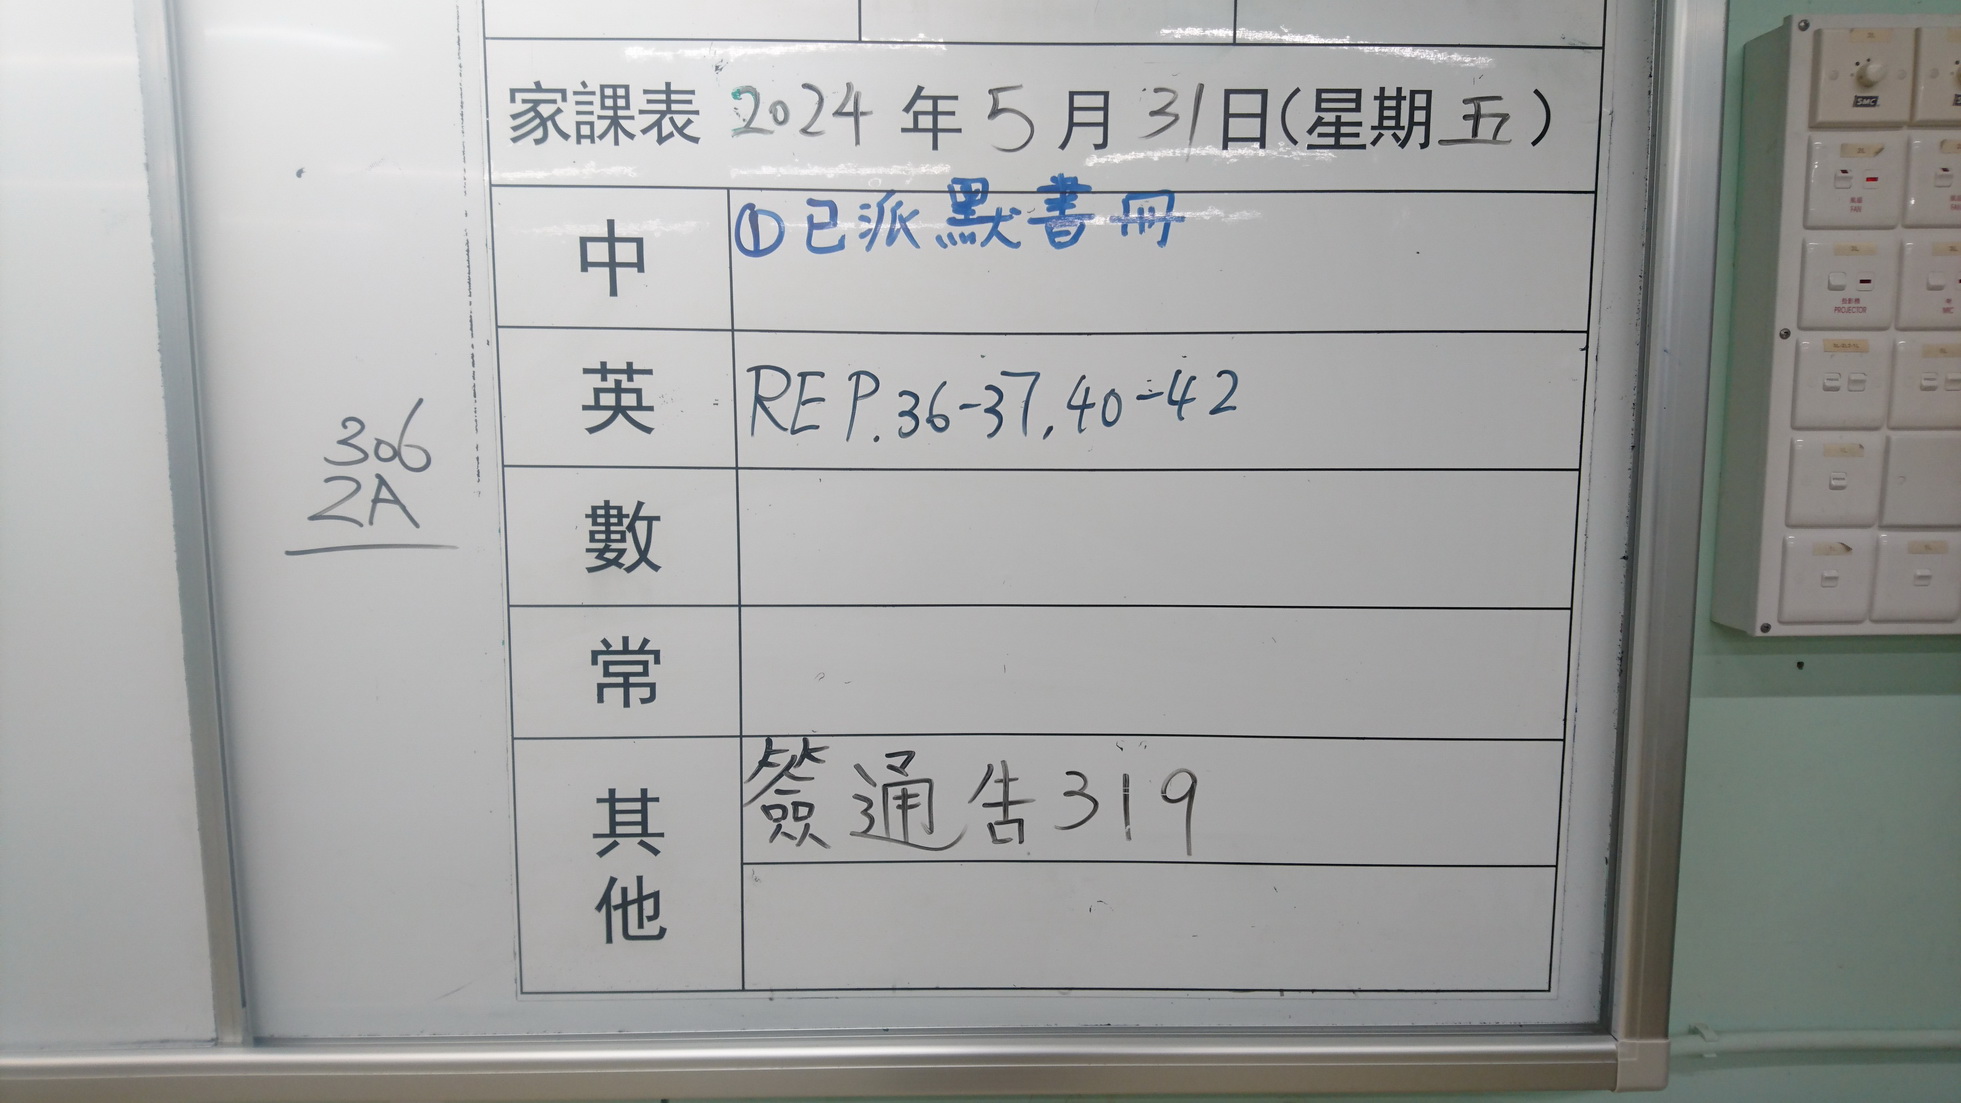 家課表 2024 年 5 月 31 日(星期 五 )
中 ①已派默書冊
英 RE P.36-37, 40-42
306
2A
數
常
其他 簽通告319
SMC
FAN
PROJECTOR
MIC